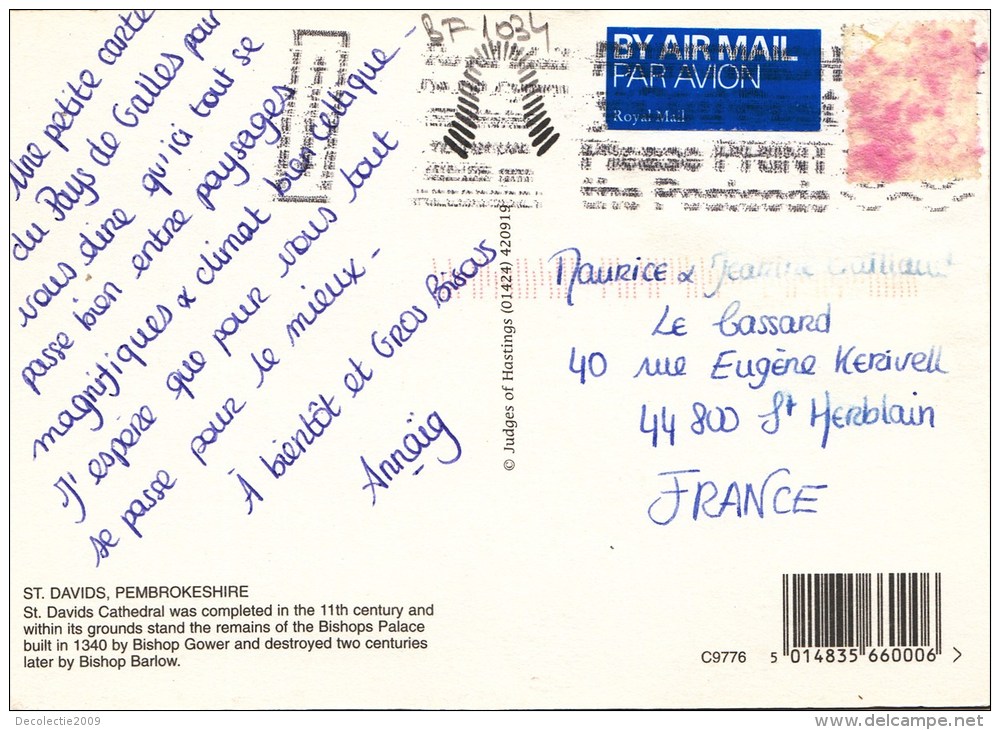 Une petite carte
du Pays de Galles pour
vous dire qu'ici tout se
passe bien entre paysages
magnifiques & climat bien celtique -
J'espère que pour vous tout
se passe pour le mieux -
À bientôt et Gros Bisous
Annaïg
BF 1034
BY AIR MAIL
PAR AVION
Royal Mail
© Judges of Hastings (01424) 420919
Maurice &
Le Cassard
40 rue Eugène Kerivell
44 800 St Herblain
FRANCE
ST. DAVIDS, PEMBROKESHIRE
St. Davids Cathedral was completed in the 11th century and
within its grounds stand the remains of the Bishops Palace
built in 1340 by Bishop Gower and destroyed two centuries
later by Bishop Barlow.
C9776 5 014835 660006 >
Decolectie2009
www.delcampe.net